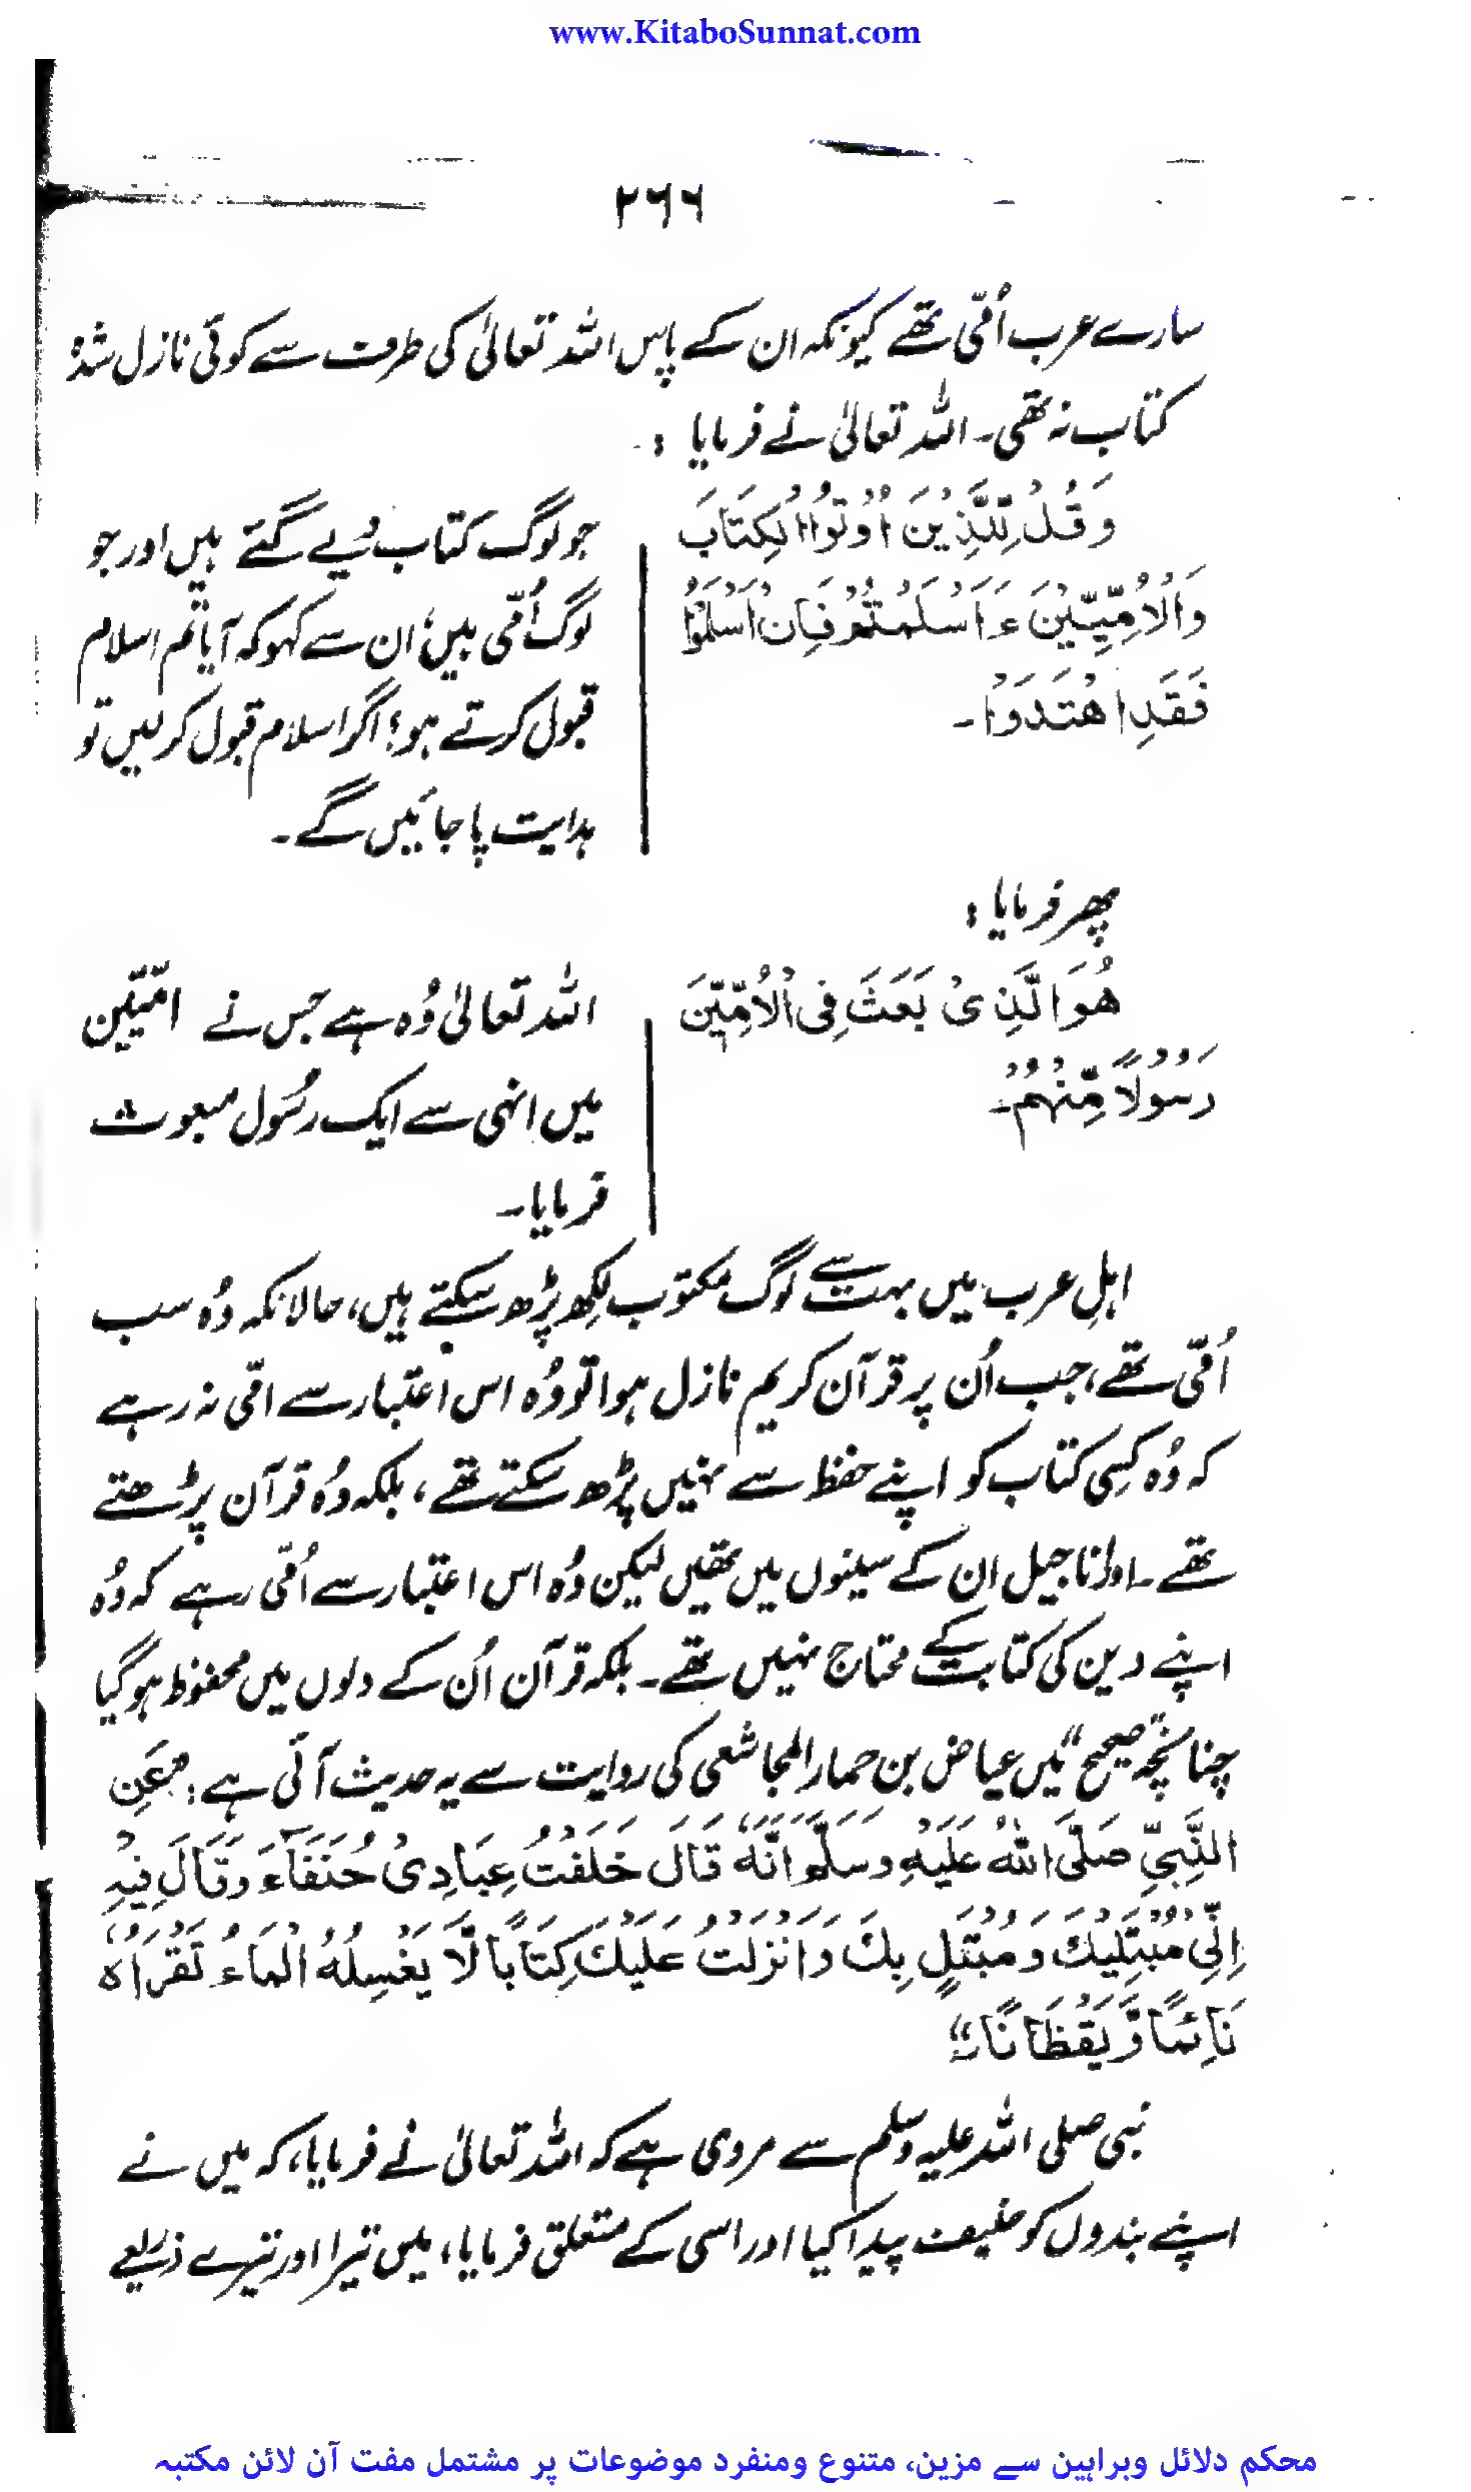 www.KitaboSunnat.com
۲۶۶
سارے عرب اُمّی تھے کیونکہ ان کے پاس اللہ تعالیٰ کی طرف سے کوئی نازل شدہ
کتاب نہ تھی۔ اللہ تعالیٰ نے فرمایا :-
وَقُلْ لِّلَّذِیْنَ اُوْتُوا الْکِتَابَ
وَالْاُمِّیِّیْنَ ءَاَسْلَمْتُمْ فَاِنْ اَسْلَمُوْا
فَقَدِ اھْتَدَوْا۔
جو لوگ کتاب دیے گئے ہیں اور جو
لوگ اُمّی ہیں؛ ان سے کہو کہ آیا تم اسلام
قبول کرتے ہو؟ اگر اسلام قبول کر لیں تو
ہدایت پا جائیں گے۔
پھر فرمایا :
ھُوَ الَّذِیْ بَعَثَ فِی الْاُمِّیّٖنَ
رَسُوْلًا مِّنْہُمْ۔
اللہ تعالیٰ وُہ ہے جس نے امّیّین
میں انہی سے ایک رسُول مبعوث
فرمایا۔
اہلِ عرب میں بہت سے لوگ مکتوب لکھ پڑھ سکتے ہیں، حالانکہ وُہ سب
اُمّی تھے، جب اُن پر قرآن کریم نازل ہوا تو وُہ اس اعتبار سے امّی نہ رہے
کہ وُہ کسِی کتاب کو اپنے حفظ سے نہیں پڑھ سکتے تھے، بلکہ وُہ قرآن پڑھتے
تھے۔ اور اناجیل ان کے سینوں میں تھیں لیکن وُہ اس اعتبار سے اُمّی رہے کہ وُہ
اپنے دین کی کتابت کے محتاج نہیں تھے۔ بلکہ قرآن اُن کے دلوں میں محفوظ ہو گیا
چنانچہ "صحیح" میں عیاض بن حمار المجاشعی کی روایت سے یہ حدیث آئی ہے: "عَنِ
النَّبِیِّ صَلَّی اللہُ عَلَیْہِ وَسَلَّمَ اَنَّہٗ قَالَ خَلَقْتُ عِبَادِیْ حُنَفَآءَ وَقَالَ فِیْہِ
اِنِّیْ مُبْتَلِیْکَ وَ مُبْتَلٍ بِکَ وَاَنْزَلْتُ عَلَیْکَ کِتَابًا لَّا یَغْسِلُہُ الْمَاءُ تَقْرَاُہٗ
نَائِمًا وَّ یَقْظَانًا۔"
نبی صلی اللہ علیہ وسلم سے مروی ہے کہ اللہ تعالیٰ نے فرمایا، کہ میں نے
اپنے بندوں کو حنیف پیدا کیا اور اسی کے متعلق فرمایا، میں تیرا اور تیرے ذریعے
محکم دلائل وبراہین سے مزین، متنوع ومنفرد موضوعات پر مشتمل مفت آن لائن مکتبہ